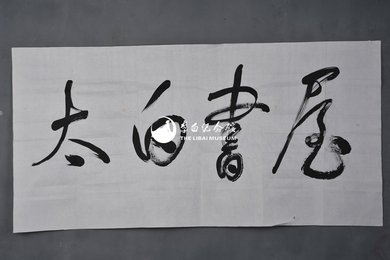 太白書屋
李白纪念馆
THE LIBAI MUSEUM